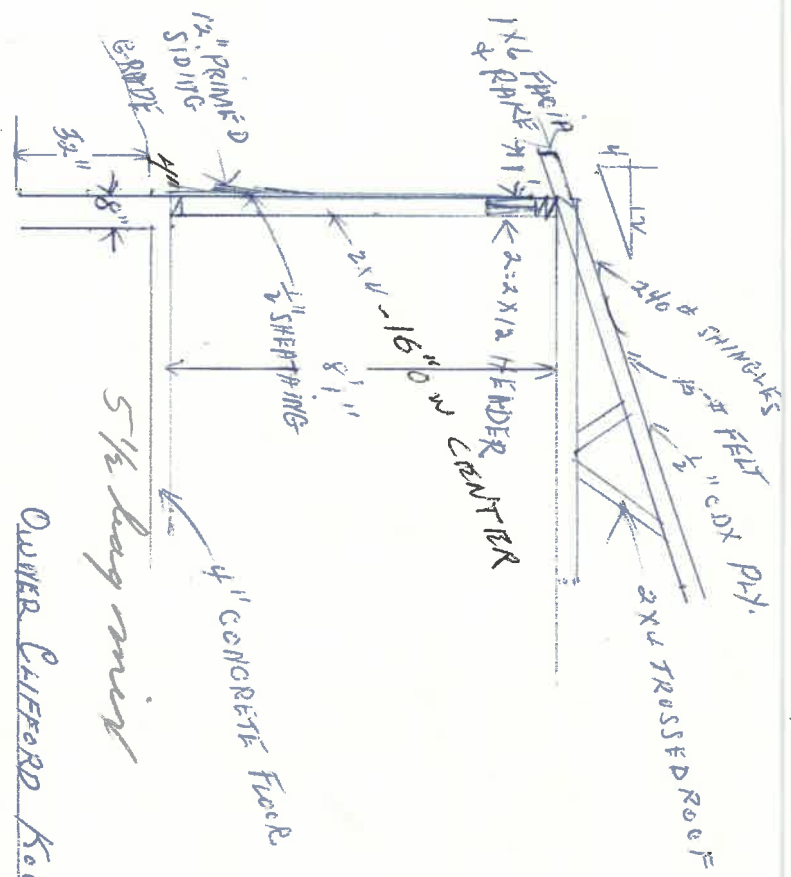 4
12
240 # SHINGLES
# FELT
1/2" CDX PLY.
2X4 TRUSSED ROOF
1X6 FACIA
& RAKE
2=2X12 HEADER
2X4 - 16" ON CENTER
8'1"
1/2" SHEATHING
12" PRIMED
SIDING
GRADE
4"
8"
32"
4" CONCRETE FLOOR
5 1/2 bag
OWNER CLIFFORD